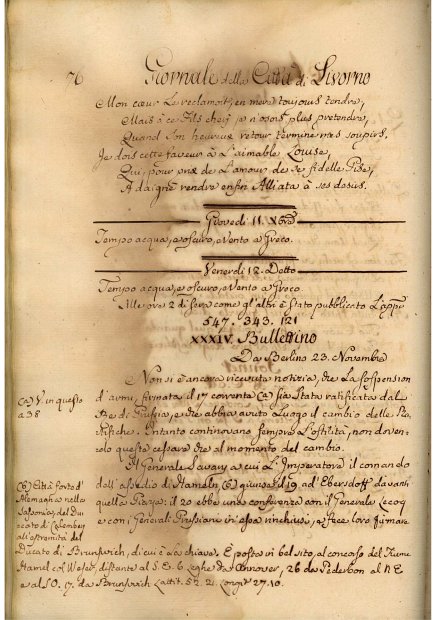 76 Giornale della Città di Livorno
Mon cœur Le reclamoit, en mere toujours tendre,
Mais à ce Fils cherj je n'osois plus pretendre,
Quand Son heureux retour termine mes soupirs.
Je dois cette faveur à L'aimable Louise,
Qui, pour prix de L'amour de sa fidelle Pise,
A daigné rendre enfin Alliata à ses desirs.
Giovedì 11. Xbre
Tempo acqua, e oscuro, e Vento a Greco.
Venerdì 12. Detto
Tempo acqua, e oscuro, e Vento a Greco
Alle ore 2 di Sera come gl'altri è Stato pubblicato L'appo
547. 343. 121
XXXIV. Bullettino
Da Berlino 23. Novembre
Non si è ancora ricevuta notizia, che La Sospension
d'armi, firmata il 17 corrente (a) sia Stata ratificata dal
Re di Prussia, e che abbia avuto Luogo il cambio delle
Intanto continovano Sempre L'ostilità, non doven-
rolo queste cessare che al momento del cambio.
Il Generale Savary a cui L'Imperatore il comando
dell'assedio di Hameln (b) giunse il 19 ad Ebersdorff davanti
quella Piazza: il 20 ebbe una conferenza con il Generale Lecoq
e con i Generali Prussiani in essa rinchiusi, e fece loro firmare
(a) V. in questo
a 38
(b) Città forte d'
Alemagna nella
Sassonia, nel Du
cato di Calemberg
all'estremità del
Ducato di Brunswich, di cui è La chiave. È posta in bel sito, al concorso del Fiume
Hamel col Weser, distante al S. E. 6. Leghe da Annover, 26 da Paderbon al N. E
e al SO. 17. da Brunswich Latit. 52. 2. Longit 27. 10.